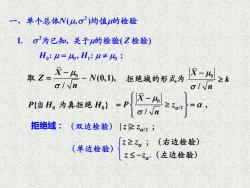 一、单个总体N(μ,σ²)均值μ的检验
1. σ²为已知, 关于μ的检验(Z 检验)
H₀: μ = μ₀, H₁: μ ≠ μ₀ ;
取 Z = (X̄ − μ₀)/(σ / √n) ~ N(0,1), 拒绝域的形式为 |(X̄ − μ₀)/(σ / √n)| ≥ k
P{当 H₀ 为真拒绝 H₀} = P{|(X̄ − μ₀)/(σ / √n)| ≥ z_{α/2}} = α ,
拒绝域： (双边检验) |z| ≥ z_{α/2} ;
(单边检验) { z ≥ z_α ; (右边检验)
z ≤ −z_α. (左边检验)